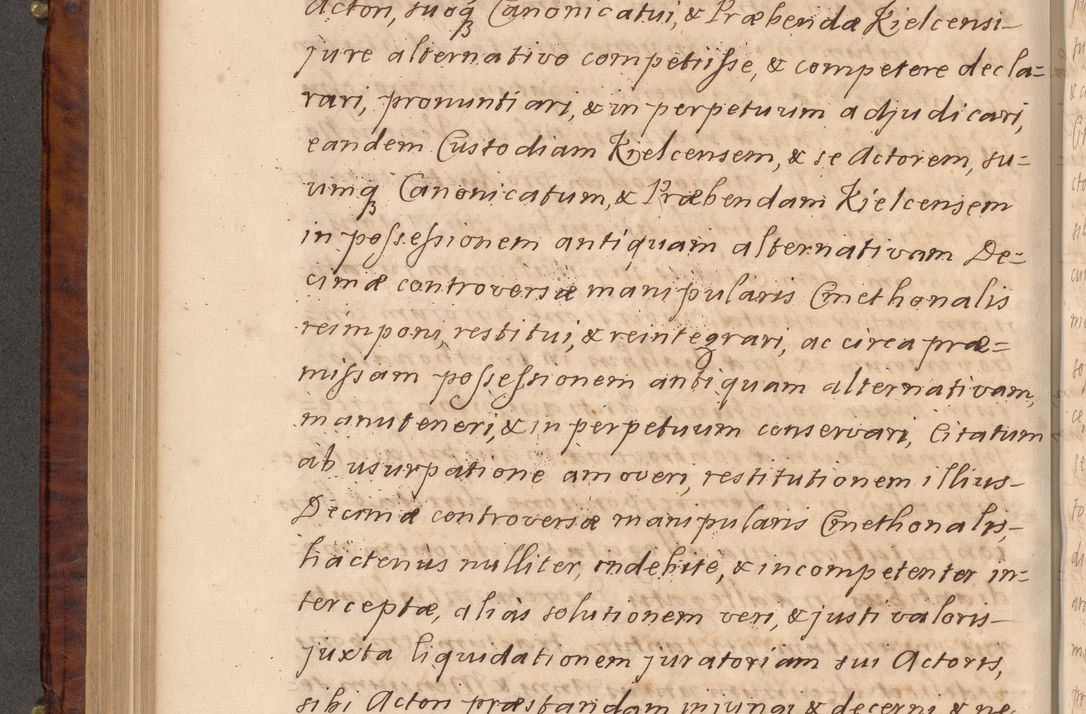 Actori, suoq Canonicatui, & Præbendæ Kielcensi
jure alternativo competiisse, & competere decla=
rari, pronuntiari, & in perpetuum adjudicari,
eandem Custodiam Kielcensem, & se Actorem, su=
umq Canonicatum, & Præbendam Kielcensem
in possessionem antiquam alternativam De=
cimæ controversæ manipularis Cmethonalis
reimponi, restitui, & reintegrari, ac circa præ=
missam possessionem antiquam alternativam,
manuteneri, & in perpetuum conservari, Citatum
ab usurpatione amoveri, restitutionem illius
Decimæ controversæ manipularis Cmethonalis,
hactenus nulliter, indebite, & incompetenter in=
terceptæ, alias solutionem veri, & justi valoris
juxta liquidationem juratoriam sui Actoris,
sibi Actori præstandam injungi & decerni & ne